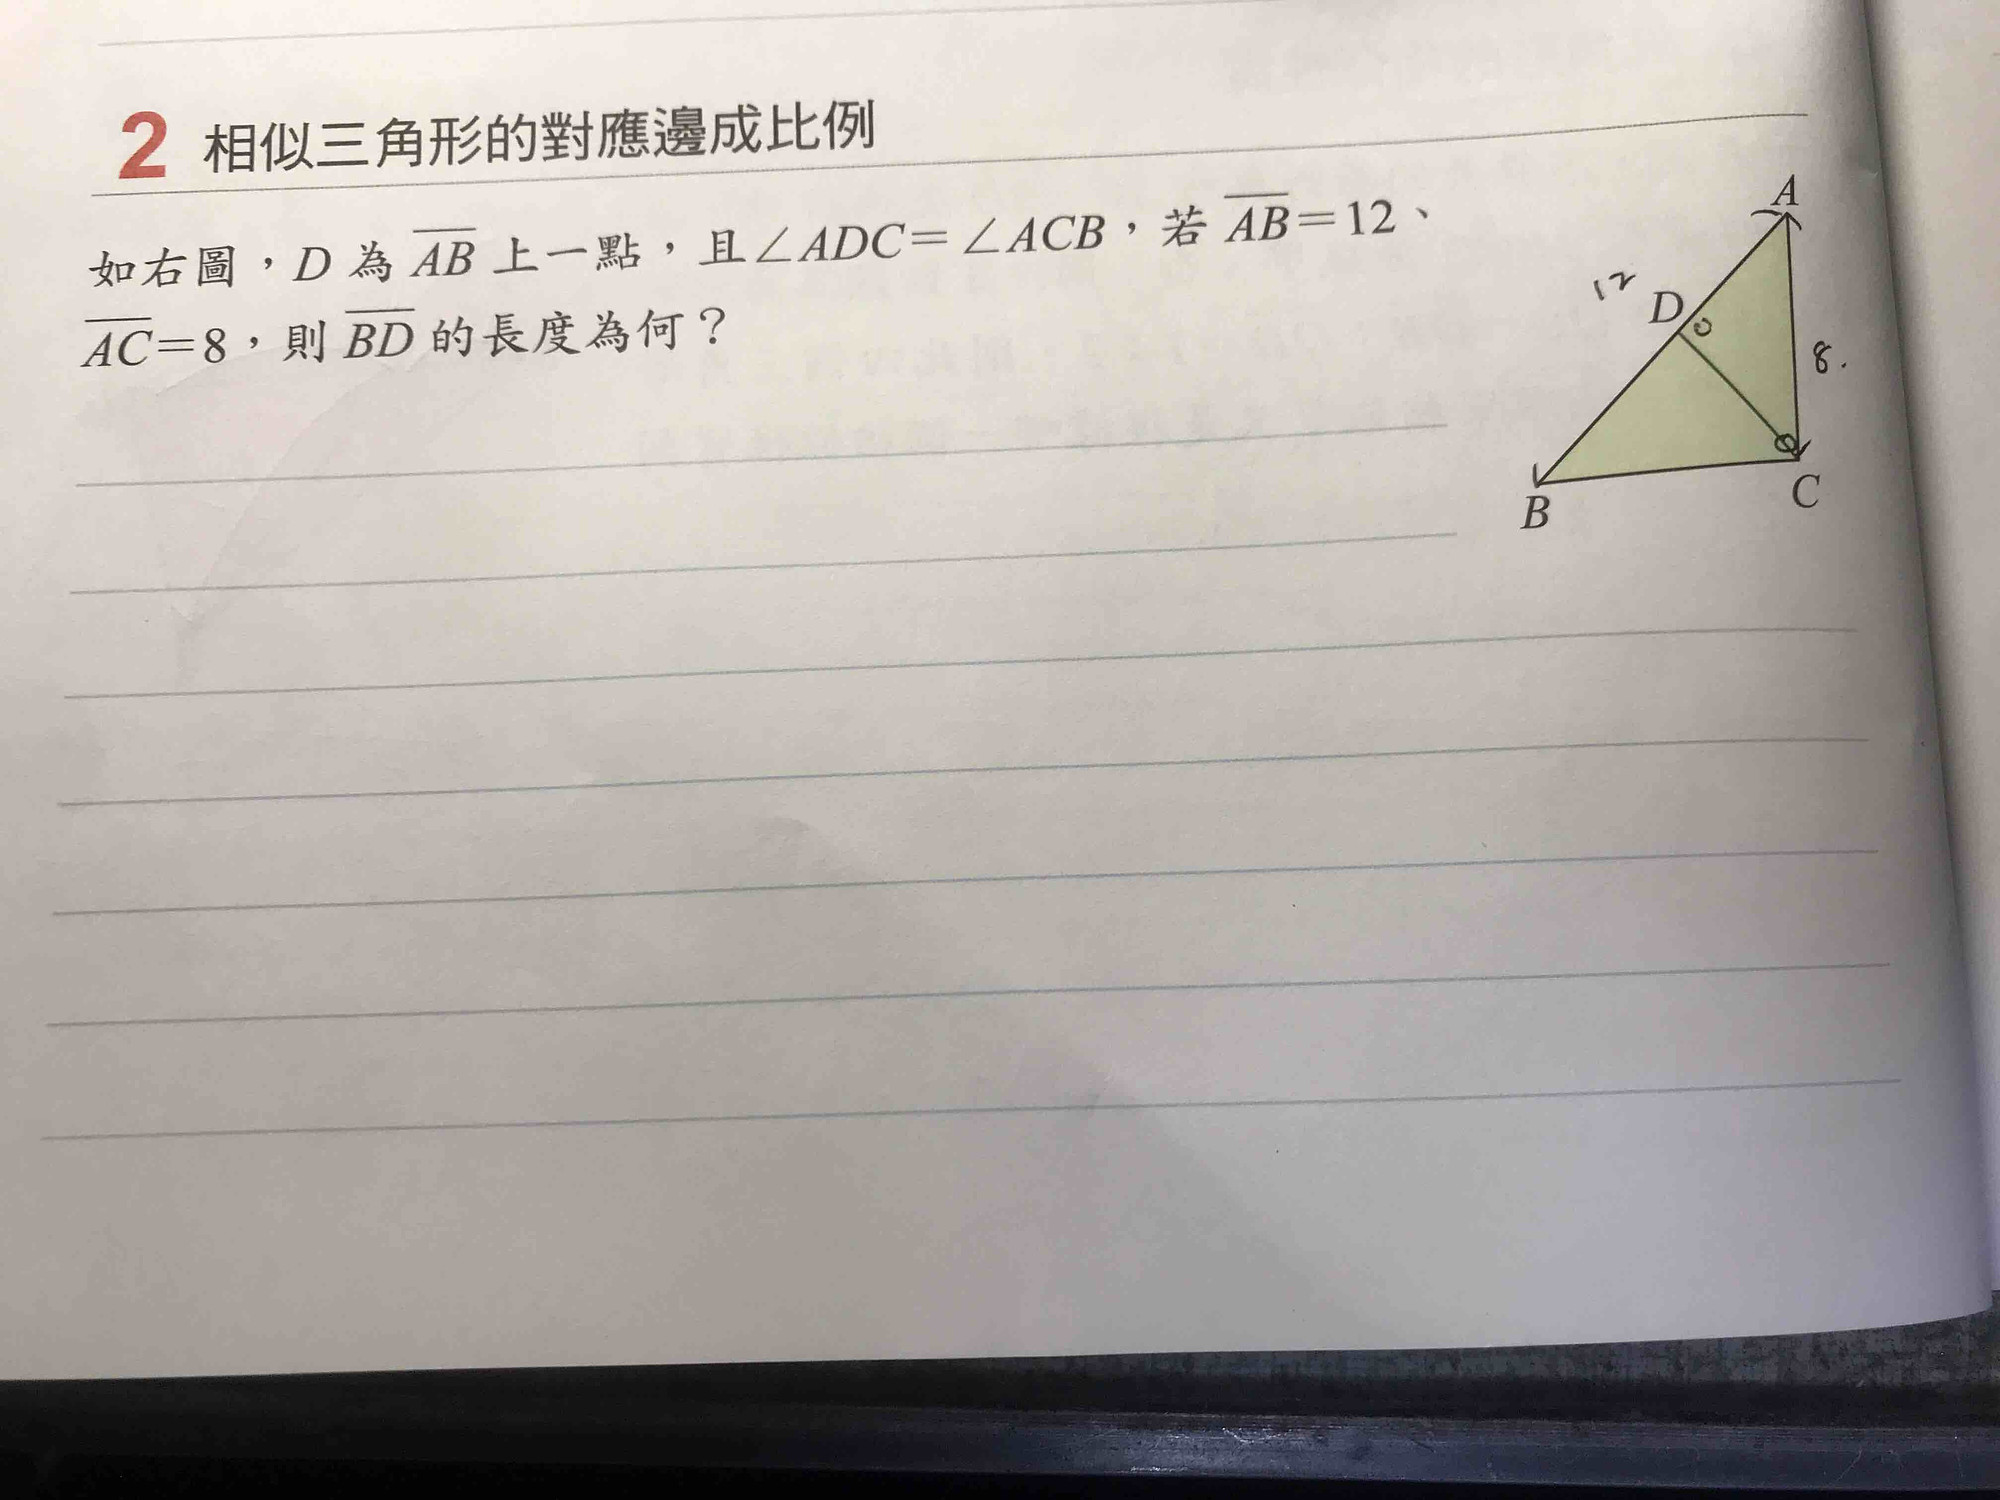 2 相似三角形的對應邊成比例
如右圖，D 為 AB 上一點，且∠ADC=∠ACB，若 AB=12、
AC=8，則 BD 的長度為何？
A
12
D
8.
B
C